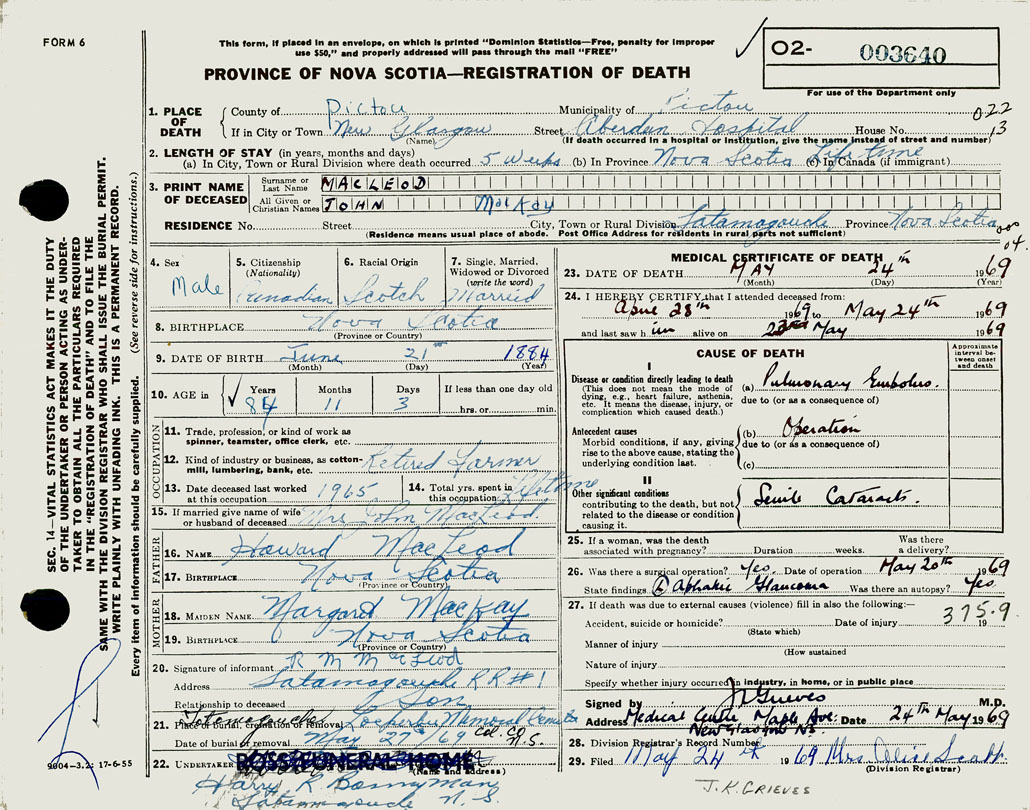 FORM 6
This form, if placed in an envelope, on which is printed "Dominion Statistics—Free, penalty for improper
use $50," and properly addressed will pass through the mail "FREE"
PROVINCE OF NOVA SCOTIA—REGISTRATION OF DEATH
O2- 003640
For use of the Department only
022
13
1. PLACE OF DEATH
County of Pictou Municipality of Pictou
If in City or Town New Glasgow Street Aberdeen Hospital House No.
(Name) (If death occurred in a hospital or institution, give the name instead of street and number)
2. LENGTH OF STAY (in years, months and days)
(a) In City, Town or Rural Division where death occurred 5 Weeks (b) In Province Nova Scotia (c) In Canada (if immigrant) Lifetime
3. PRINT NAME OF DECEASED
Surname or Last Name MACLEOD
All Given or Christian Names JOHN MacKay
RESIDENCE No. Street City, Town or Rural Division Tatamagouche Province Nova Scotia
(Residence means usual place of abode. Post Office Address for residents in rural parts not sufficient)
04.
4. Sex Male
5. Citizenship (Nationality) Canadian
6. Racial Origin Scotch
7. Single, Married, Widowed or Divorced (write the word) Married
8. BIRTHPLACE Nova Scotia
(Province or Country)
9. DATE OF BIRTH June 21 1884
(Month) (Day) (Year)
10. AGE in Years 84 Months 11 Days 3 If less than one day old hrs. or min.
OCCUPATION
11. Trade, profession, or kind of work as spinner, teamster, office clerk, etc.
12. Kind of industry or business, as cotton-mill, lumbering, bank, etc. Retired Farmer
13. Date deceased last worked at this occupation 1965 14. Total yrs. spent in this occupation Lifetime
15. If married give name of wife or husband of deceased Mrs John MacLeod
FATHER
16. NAME Howard MacLeod
17. BIRTHPLACE Nova Scotia
(Province or Country)
MOTHER
18. MAIDEN NAME Margaret MacKay
19. BIRTHPLACE Nova Scotia
(Province or Country)
20. Signature of informant R M McLeod
Address Tatamagouche R R # 1
Relationship to deceased Son
21. Place of burial, cremation or removal Tatamagouche Memorial Col. Co N.S.
Date of burial or removal May 27/69
22. UNDERTAKER ROSS FUNERAL HOME
(Name and address)
Harry R Bonnyman
Tatamagouche N. S.
MEDICAL CERTIFICATE OF DEATH
23. DATE OF DEATH MAY 24th 1969
(Month) (Day) (Year)
24. I HEREBY CERTIFY that I attended deceased from:
April 28th 1969 to May 24th 1969
and last saw him alive on 23rd May 1969
CAUSE OF DEATH
Approximate interval between onset and death
I
Disease or condition directly leading to death
(This does not mean the mode of dying, e.g., heart failure, asthenia, etc. It means the disease, injury, or complication which caused death.)
(a) Pulmonary Embolus.
due to (or as a consequence of)
Antecedent causes
Morbid conditions, if any, giving rise to the above cause, stating the underlying condition last.
(b) Operation
due to (or as a consequence of)
(c)
II
Other significant conditions
contributing to the death, but not related to the disease or condition causing it.
Senile Cataracts.
25. If a woman, was the death associated with pregnancy? Duration weeks. Was there a delivery?
26. Was there a surgical operation? Yes. Date of operation May 20th 1969
State findings R Aphakic Glaucoma Was there an autopsy? Yes
27. If death was due to external causes (violence) fill in also the following:—
375.9
Accident, suicide or homicide? Date of injury 19
(State which)
Manner of injury
(How sustained
Nature of injury
Specify whether injury occurred in industry, in home, or in public place
Signed by J K Grieves M.D.
Address Medical Centre Maple Ave. Date 24th May 1969
New Glasgow NS.
28. Division Registrar's Record Number
29. Filed May 24th 1969 Mrs Scott
(Division Registrar)
J.K. GRIEVES
SEC. 14—VITAL STATISTICS ACT MAKES IT THE DUTY
OF THE UNDERTAKER OR PERSON ACTING AS UNDER-
TAKER TO OBTAIN ALL THE PARTICULARS REQUIRED
IN THE "REGISTRATION OF DEATH" AND TO FILE THE
SAME WITH THE DIVISION REGISTRAR WHO SHALL ISSUE THE BURIAL PERMIT.
WRITE PLAINLY WITH UNFADING INK. THIS IS A PERMANENT RECORD.
Every item of information should be carefully supplied. (See reverse side for instructions.)
9004-3.2: 17-6-55